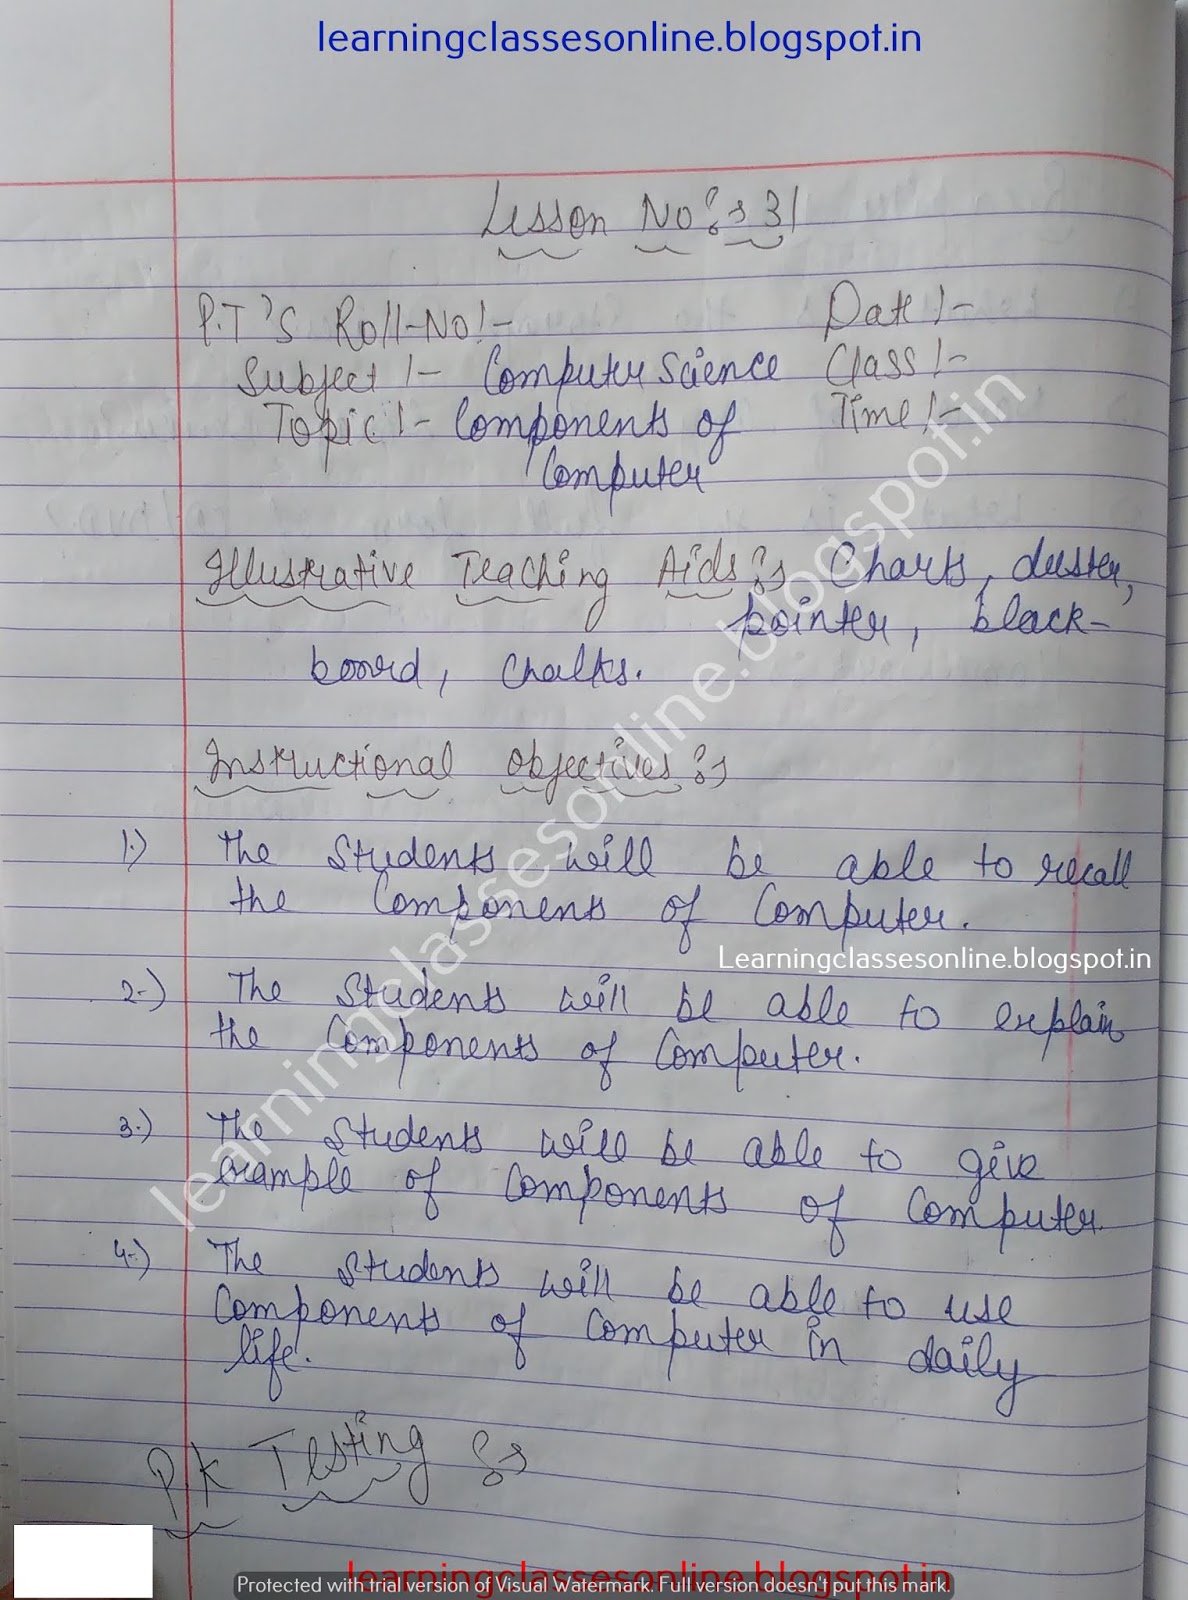 learningclassesonline.blogspot.in
Lesson No:- 31
P.T'S Roll-No:- Date:-
Subject:- Computer Science Class:-
Topic:- Components of Time:-
Computer
Illustrative Teaching Aids:- Charts, duster,
pointer, black-
board, chalks.
Instructional objectives:-
1.) The students will be able to recall
the Components of Computer.
Learningclassesonline.blogspot.in
2.) The students will be able to explain
the Components of Computer.
3.) The students will be able to give
example of Components of Computer.
4.) The students will be able to use
Components of Computer in daily
life.
P.K Testing:-
learningclassesonline.blogspot.in
learningclassesonline.blogspot.in
Protected with trial version of Visual Watermark. Full version doesn't put this mark.